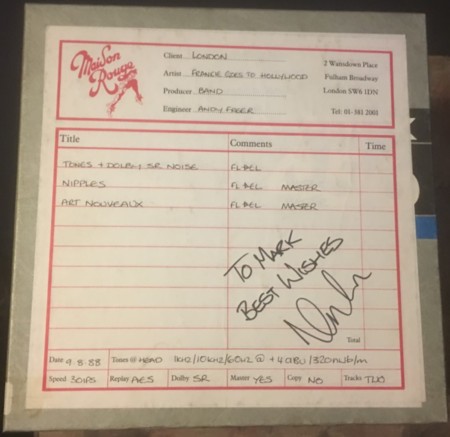 Maison Rouge
Client LONDON
Artist FRANKIE GOES TO HOLLYWOOD
Producer BAND
Engineer ANDY
2 Wansdown Place
Fulham Broadway
London SW6 1DN
Tel: 01-381 2001
Title Comments Time
TONES + DOLBY SR NOISE
NIPPLES MASTER
ART NOUVEAUX MASTER
TO MARK
BEST WISHES
Total
Date 9.8.88 Tones @ HEAD 1kHz/10kHz/60Hz @ +4dBu/320nWb/m
Speed 30IPS Replay AES Dolby SR Master YES Copy NO Tracks TWO